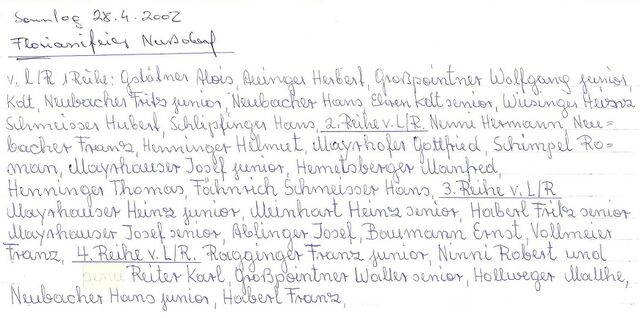 Sonntag 28.4.2002
Florianifeier Nußdorf
v. L/R 1 Reihe: Gstöttner Alois, Auinger Herbert, Großpointner Wolfgang junior,
Kolt, Neubacher Fritz junior, Neubacher Hans, Ehren Kolt senior, Wiesinger Heinz
Schmeisser Hubert, Schlipfinger Hans, 2. Reihe v. L/R. Nenni Hermann, Neu=
bacher Franz, Henninger Helmut, Mayrhofer Gottfried, Schimpel Ro=
man, Mayrhauser Josef junior, Hemetsberger Manfred,
Henninger Thomas, Fähnrich Schmeisser Hans, 3. Reihe v. L/R
Mayrhauser Heinz junior, Meinhart Heinz senior, Haberl Fritz senior
Mayrhauser Josef senior, Ablinger Josef, Baumann Ernst, Vollmeier
Franz, 4. Reihe v. L/R. Ragginger Franz junior, Ninni Robert und
Reiter Karl, Großpointner Walter senior, Hollweger Matthe,
Neubacher Hans junior, Haberl Franz,